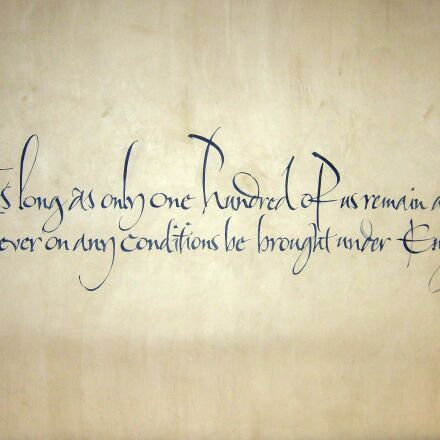 s long as only one hundred of us remain a
ever on any conditions be brought under En